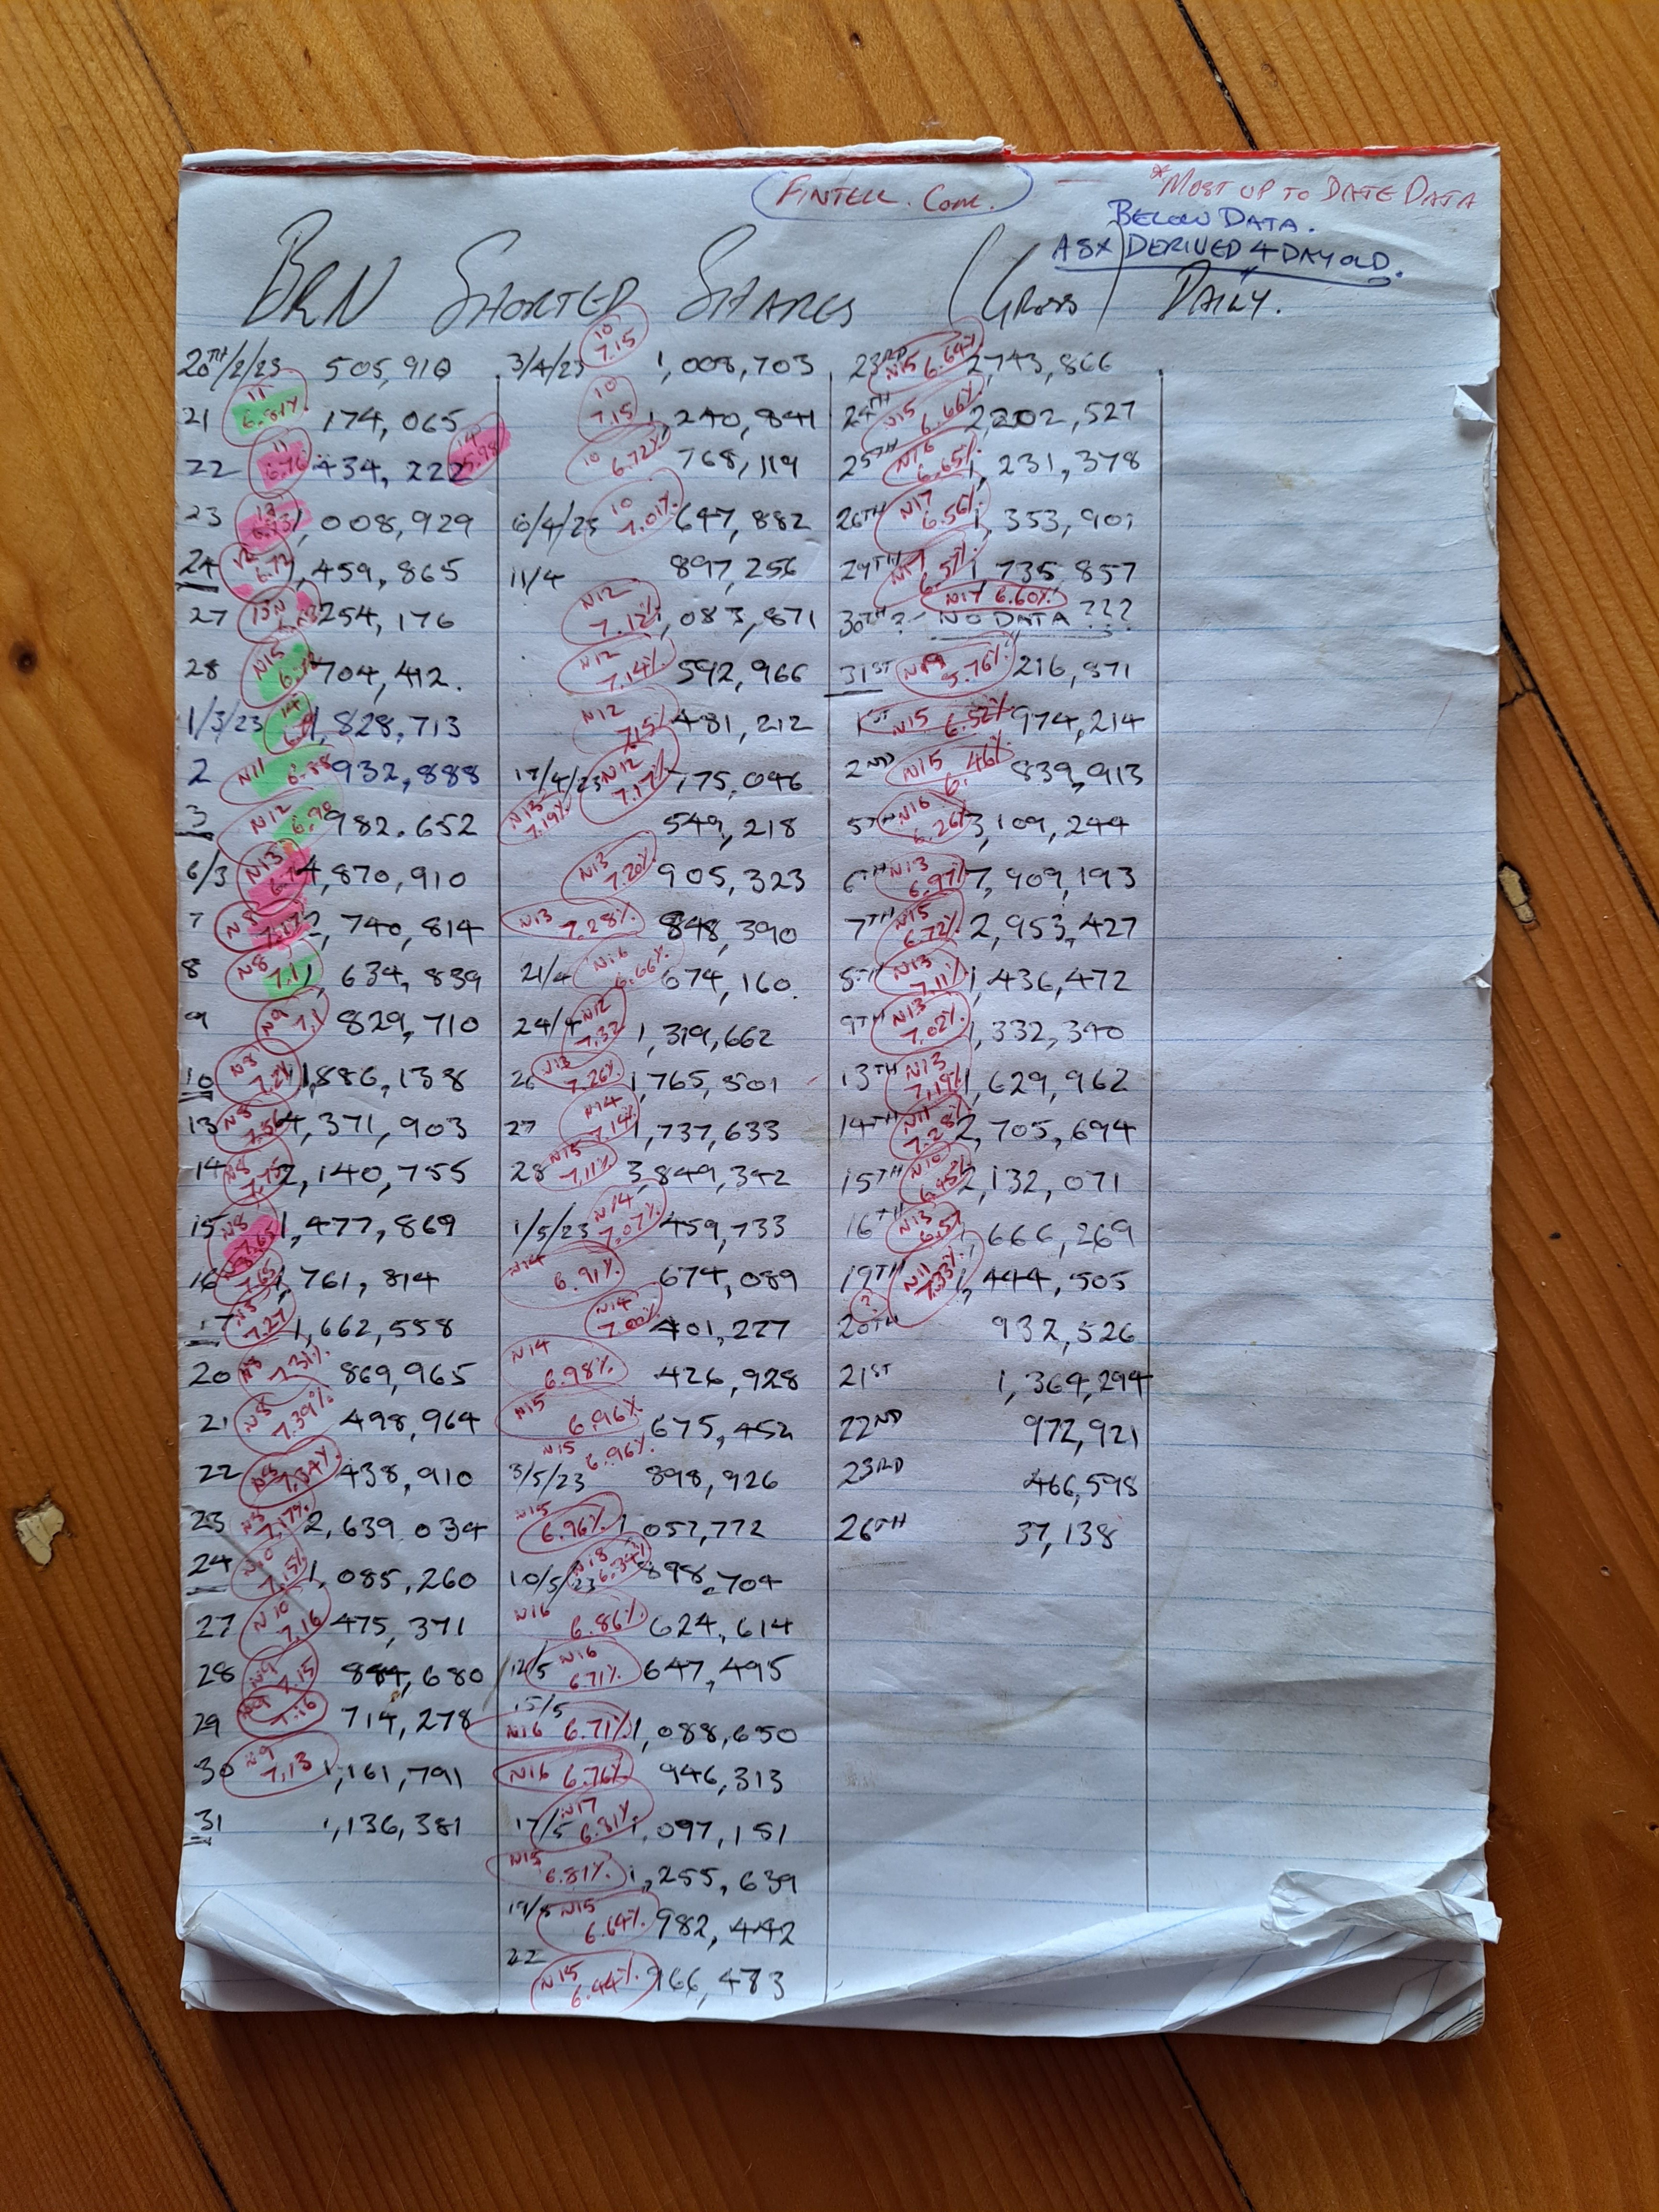 FINTELL.COM. — *MOST UP TO DATE DATA
BELOW DATA.
ASX DERIVED 4 DAY OLD.
BRN SHORTED SHARES (GROSS) DAILY.
20TH/2/23 505,910
21 11 6.81% 174,065
22 11 6.76 434,222 14 5.98
23 12 1,008,929
24 12 6.72 1,459,865
27 13N 254,176
28 N15 704,412.
1/3/23 14 1,828,713
2 N11 6.88 932,888
3 N12 6.90 982.652
6/3 N13 4,870,910
7 7.17 2,740,814
8 N8 7.1 1,634,839
9 N9 7.1 829,710
10 N8 7.2 1,886,138
13 N8 7.56 4,371,903
14 N8 7.75 2,140,755
15 N8 7.65 1,477,869
16 7.65 1,761,814
17 N8 7.27 1,662,558
20 N8 7.31% 869,965
21 N8 7.39% 498,964
22 N8 7.34% 438,910
23 7.17% 2,639,034
24 N10 7.15% 1,085,260
27 N10 7.16 475,371
28 N9 7.15 884,680
29 7.16 714,278
30 N9 7.13 1,161,791
31 1,136,381
3/4/23 10 7.15 1,008,703
10 7.15 1,240,841
10 6.72% 768,119
6/4/23 10 7.01% 647,882
11/4 897,256
N12 7.12% 1,083,871
N12 7.14% 592,966
N12 7.15% 481,212
17/4/23 N12 7.17% 775,046
N13 7.19% 549,218
N13 7.20% 905,323
N13 7.28% 848,390
21/4 N16 6.66% 674,160.
24/4 N12 7.33 1,319,662
26 N13 7.26% 1,765,501
27 N14 7.14% 1,737,633
28 N15 7.11% 3,849,342
1/5/23 N14 7.07% 459,733
N14 6.91% 674,089
N14 7.00% 401,227
N14 6.98% 426,928
N15 6.96% 675,452
3/5/23 N15 6.96% 898,926
N15 6.96% 1,057,772
10/5/23 N18 6.34% 898,704
N16 6.86% 624,614
12/5 N16 6.71% 647,495
15/5 N16 6.71% 1,088,650
N16 6.76% 946,313
17/5 N17 6.81% 1,097,151
N15 6.81% 1,255,639
19/5 N15 6.64% 982,442
22 N15 6.44% 966,483
23RD N15 6.64% 2,743,866
24TH N15 6.66% 2,202,527
25TH N16 6.65% 1,231,378
26TH N17 6.56% 1,353,901
29TH N17 6.57% 1,735,857
30TH? - NO DATA ??? N17 6.60%
31ST N19 5.76% 216,871
1ST N15 6.52% 974,214
2ND N15 6.46% 839,913
5TH N16 6.26% 3,109,244
6TH N13 6.97% 7,909,193
7TH N15 6.72% 2,953,427
8TH N13 7.11% 1,436,472
9TH N13 7.02% 1,332,340
13TH N13 7.19% 1,629,962
14TH N11 7.28% 2,705,694
15TH N10 6.45% 2,132,071
16TH N13 6.57 1,666,269
19TH N11 7.33% 1,444,505
? 20TH 932,526
21ST 1,364,294
22ND 972,921
23RD 466,598
26TH 37,138